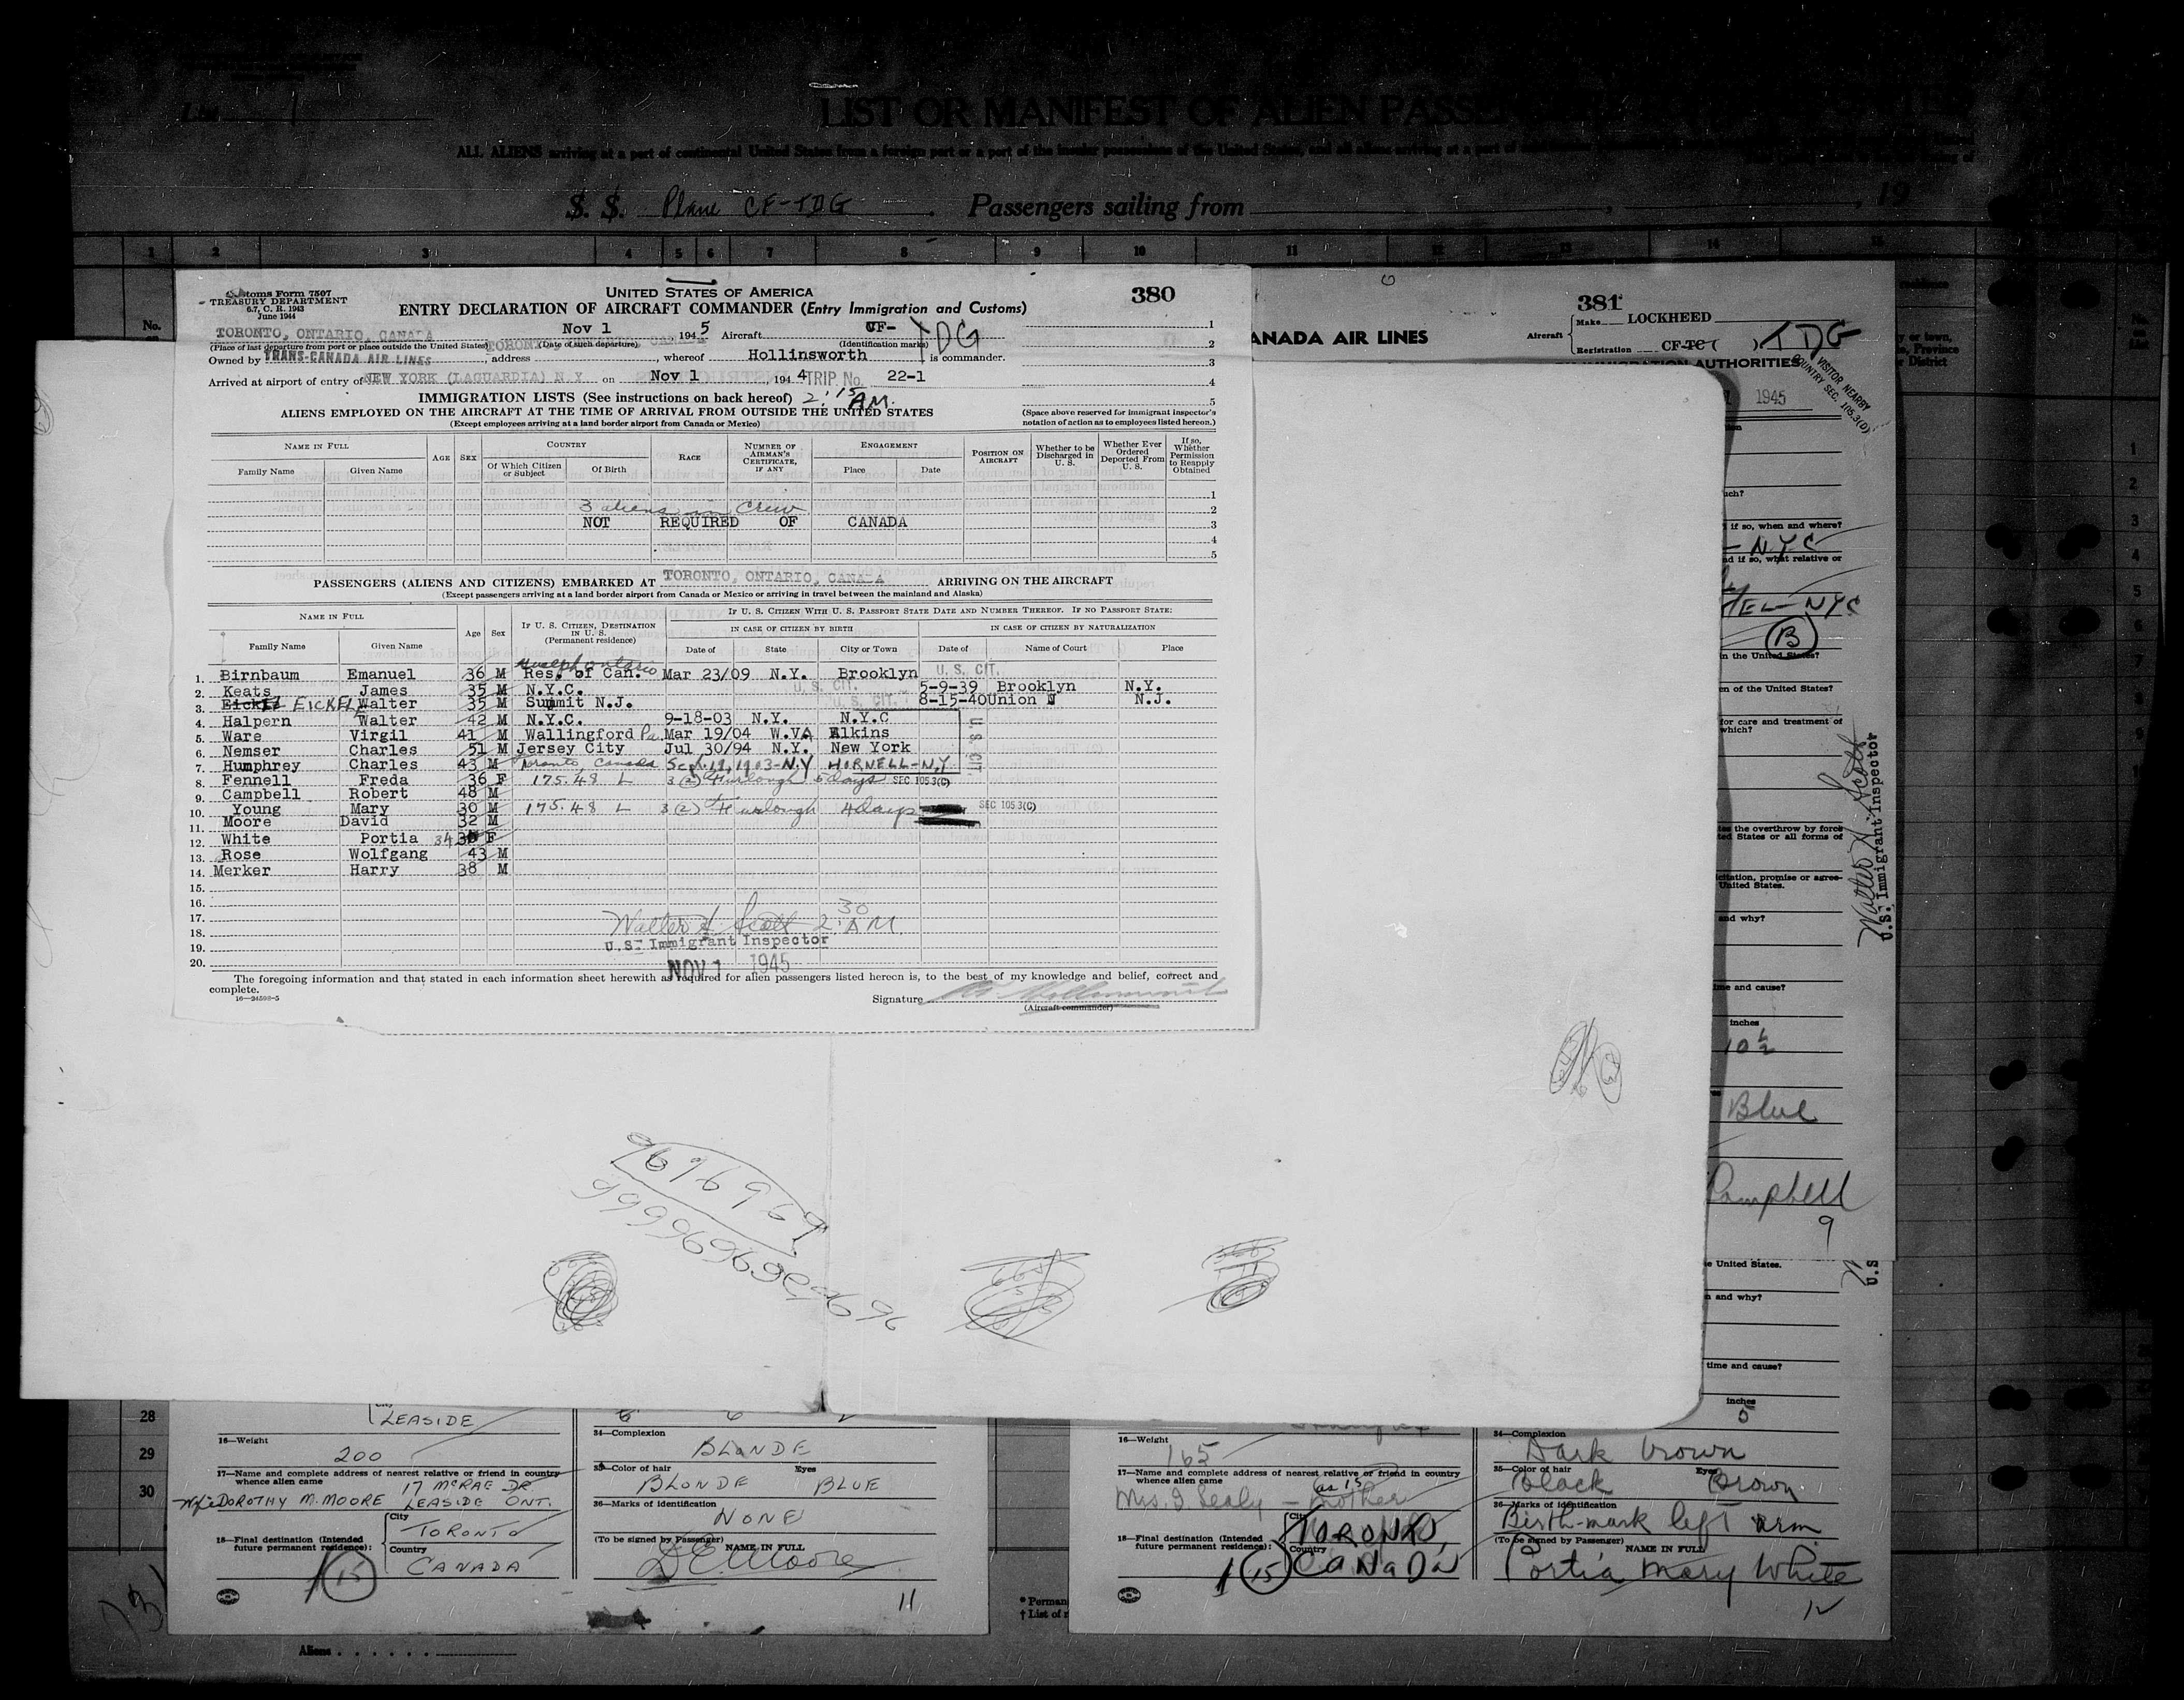 List 1
LIST OR MANIFEST OF ALIEN PASSEN
ALL ALIENS arriving at a port of continental United States from a foreign port or a port of the insular possessions of the United States, and all aliens arriving at a port of
S. S. Plane CF-TDG . Passengers sailing from , , 19
1 2 3 4 5 6 7 8 9 10 11 12 13 14 15
No.
Customs Form 7507
TREASURY DEPARTMENT
6.7, C. R. 1943
June 1944
UNITED STATES OF AMERICA
380
ENTRY DECLARATION OF AIRCRAFT COMMANDER (Entry Immigration and Customs)
TORONTO, ONTARIO, CANADA Nov 1 1945 Aircraft CF- TDG 1
(Place of last departure from port or place outside the United States) (Date of such departure) (Identification marks) 2
Owned by TRANS-CANADA AIR LINES, address TORONTO, CANADA, whereof Hollinsworth is commander. 3
Arrived at airport of entry of NEW YORK (LAGUARDIA) N.Y on Nov 1, 1944 TRIP No. 22-1 4
IMMIGRATION LISTS (See instructions on back hereof) 2:15 AM. 5
ALIENS EMPLOYED ON THE AIRCRAFT AT THE TIME OF ARRIVAL FROM OUTSIDE THE UNITED STATES
(Except employees arriving at a land border airport from Canada or Mexico)
(Space above reserved for immigrant inspector's notation of action as to employees listed hereon.)
NAME IN FULL AGE SEX COUNTRY RACE NUMBER OF AIRMAN'S CERTIFICATE, IF ANY ENGAGEMENT POSITION ON AIRCRAFT Whether to be Discharged in U. S. Whether Ever Ordered Deported From U. S. If so, Whether Permission to Reapply Obtained
Family Name Given Name Of Which Citizen or Subject Of Birth Place Date
1
3 aliens in crew 2
NOT REQUIRED OF CANADA 3
4
5
PASSENGERS (ALIENS AND CITIZENS) EMBARKED AT TORONTO, ONTARIO, CANADA ARRIVING ON THE AIRCRAFT
(Except passengers arriving at a land border airport from Canada or Mexico or arriving in travel between the mainland and Alaska)
NAME IN FULL Age Sex IF U. S. CITIZEN, DESTINATION IN U. S. (Permanent residence) IF U. S. CITIZEN WITH U. S. PASSPORT STATE DATE AND NUMBER THEREOF. IF NO PASSPORT STATE:
IN CASE OF CITIZEN BY BIRTH IN CASE OF CITIZEN BY NATURALIZATION
Family Name Given Name Date of State City or Town Date of Name of Court Place
Guelph Ontario
1. Birnbaum Emanuel 36 M Res. of Can. Mar 23/09 N.Y. Brooklyn U. S. CIT.
2. Keats James 35 M N.Y.C. U. S. CIT. 5-9-39 Brooklyn N.Y.
3. EICKEL Walter 35 M Summit N.J. U. S. CIT. 8-15-40 Union N.J.
4. Halpern Walter 42 M N.Y.C. 9-18-03 N.Y. N.Y.C
5. Ware Virgil 41 M Wallingford Pa. Mar 19/04 W.VA Elkins U. S. CIT.
6. Nemser Charles 51 M Jersey City Jul 30/94 N.Y. New York
7. Humphrey Charles 43 M Toronto, Canada Sept. 19, 1903-N.Y HORNELL-N.Y
8. Fennell Freda 36 F 175.48 L 3(2) Furlough 5 days SEC. 105.3(C)
9. Campbell Robert 48 M
10. Young Mary 30 M 175.48 L 3(2) Furlough 4 days SEC 105.3(C)
11. Moore David 32 M
12. White Portia 34 F
13. Rose Wolfgang 43 M
14. Merker Harry 38 M
15.
16.
17.
18. Walter H Scott 2:30 AM
19. U.S. Immigrant Inspector
20. NOV 1 1945
The foregoing information and that stated in each information sheet herewith as required for alien passengers listed hereon is, to the best of my knowledge and belief, correct and
complete.
16—24593-5
Signature
(Aircraft commander)
381
ANADA AIR LINES
Aircraft Make LOCKHEED
Registration CF-TC ( ) TDG
IMMIGRATION AUTHORITIES
VISITOR NEARBY
COUNTRY SEC. 105.3(D)
1945
if so, when and where?
N.Y.C
and if so, what relative or
HOTEL - NYC
B
in the United States?
en of the United States?
for care and treatment of
which?
the overthrow by force
ted States or all forms of
citation, promise or agree-
United States.
and why?
time and cause?
inches
10 1/2
Blue
Campbell
9
Walter H Scott
U.S. Immigrant Inspector
e United States.
n and why?
time and cause?
inches
5
696969
9996969696
28 LEASIDE
16—Weight 200
34—Complexion BLONDE
29
17—Name and complete address of nearest relative or friend in country whence alien came
35—Color of hair BLONDE Eyes BLUE
30
Wife DOROTHY M. MOORE 17 McRAE DR LEASIDE ONT.
36—Marks of identification NONE
18—Final destination (Intended future permanent residence): City TORONTO
Country CANADA
(To be signed by Passenger) NAME IN FULL
D.E. Moore
15
11
16—Weight 165
34—Complexion Dark brown
17—Name and complete address of nearest relative or friend in country whence alien came
35—Color of hair Black Eyes Brown
Mrs. I. Sealy - Mother as 15
36—Marks of identification Birth-mark left arm
18—Final destination (Intended future permanent residence): City TORONTO,
Country CANADA
(To be signed by Passenger) NAME IN FULL
Portia Mary White
15
12
* Perman
† List of r
Aliens